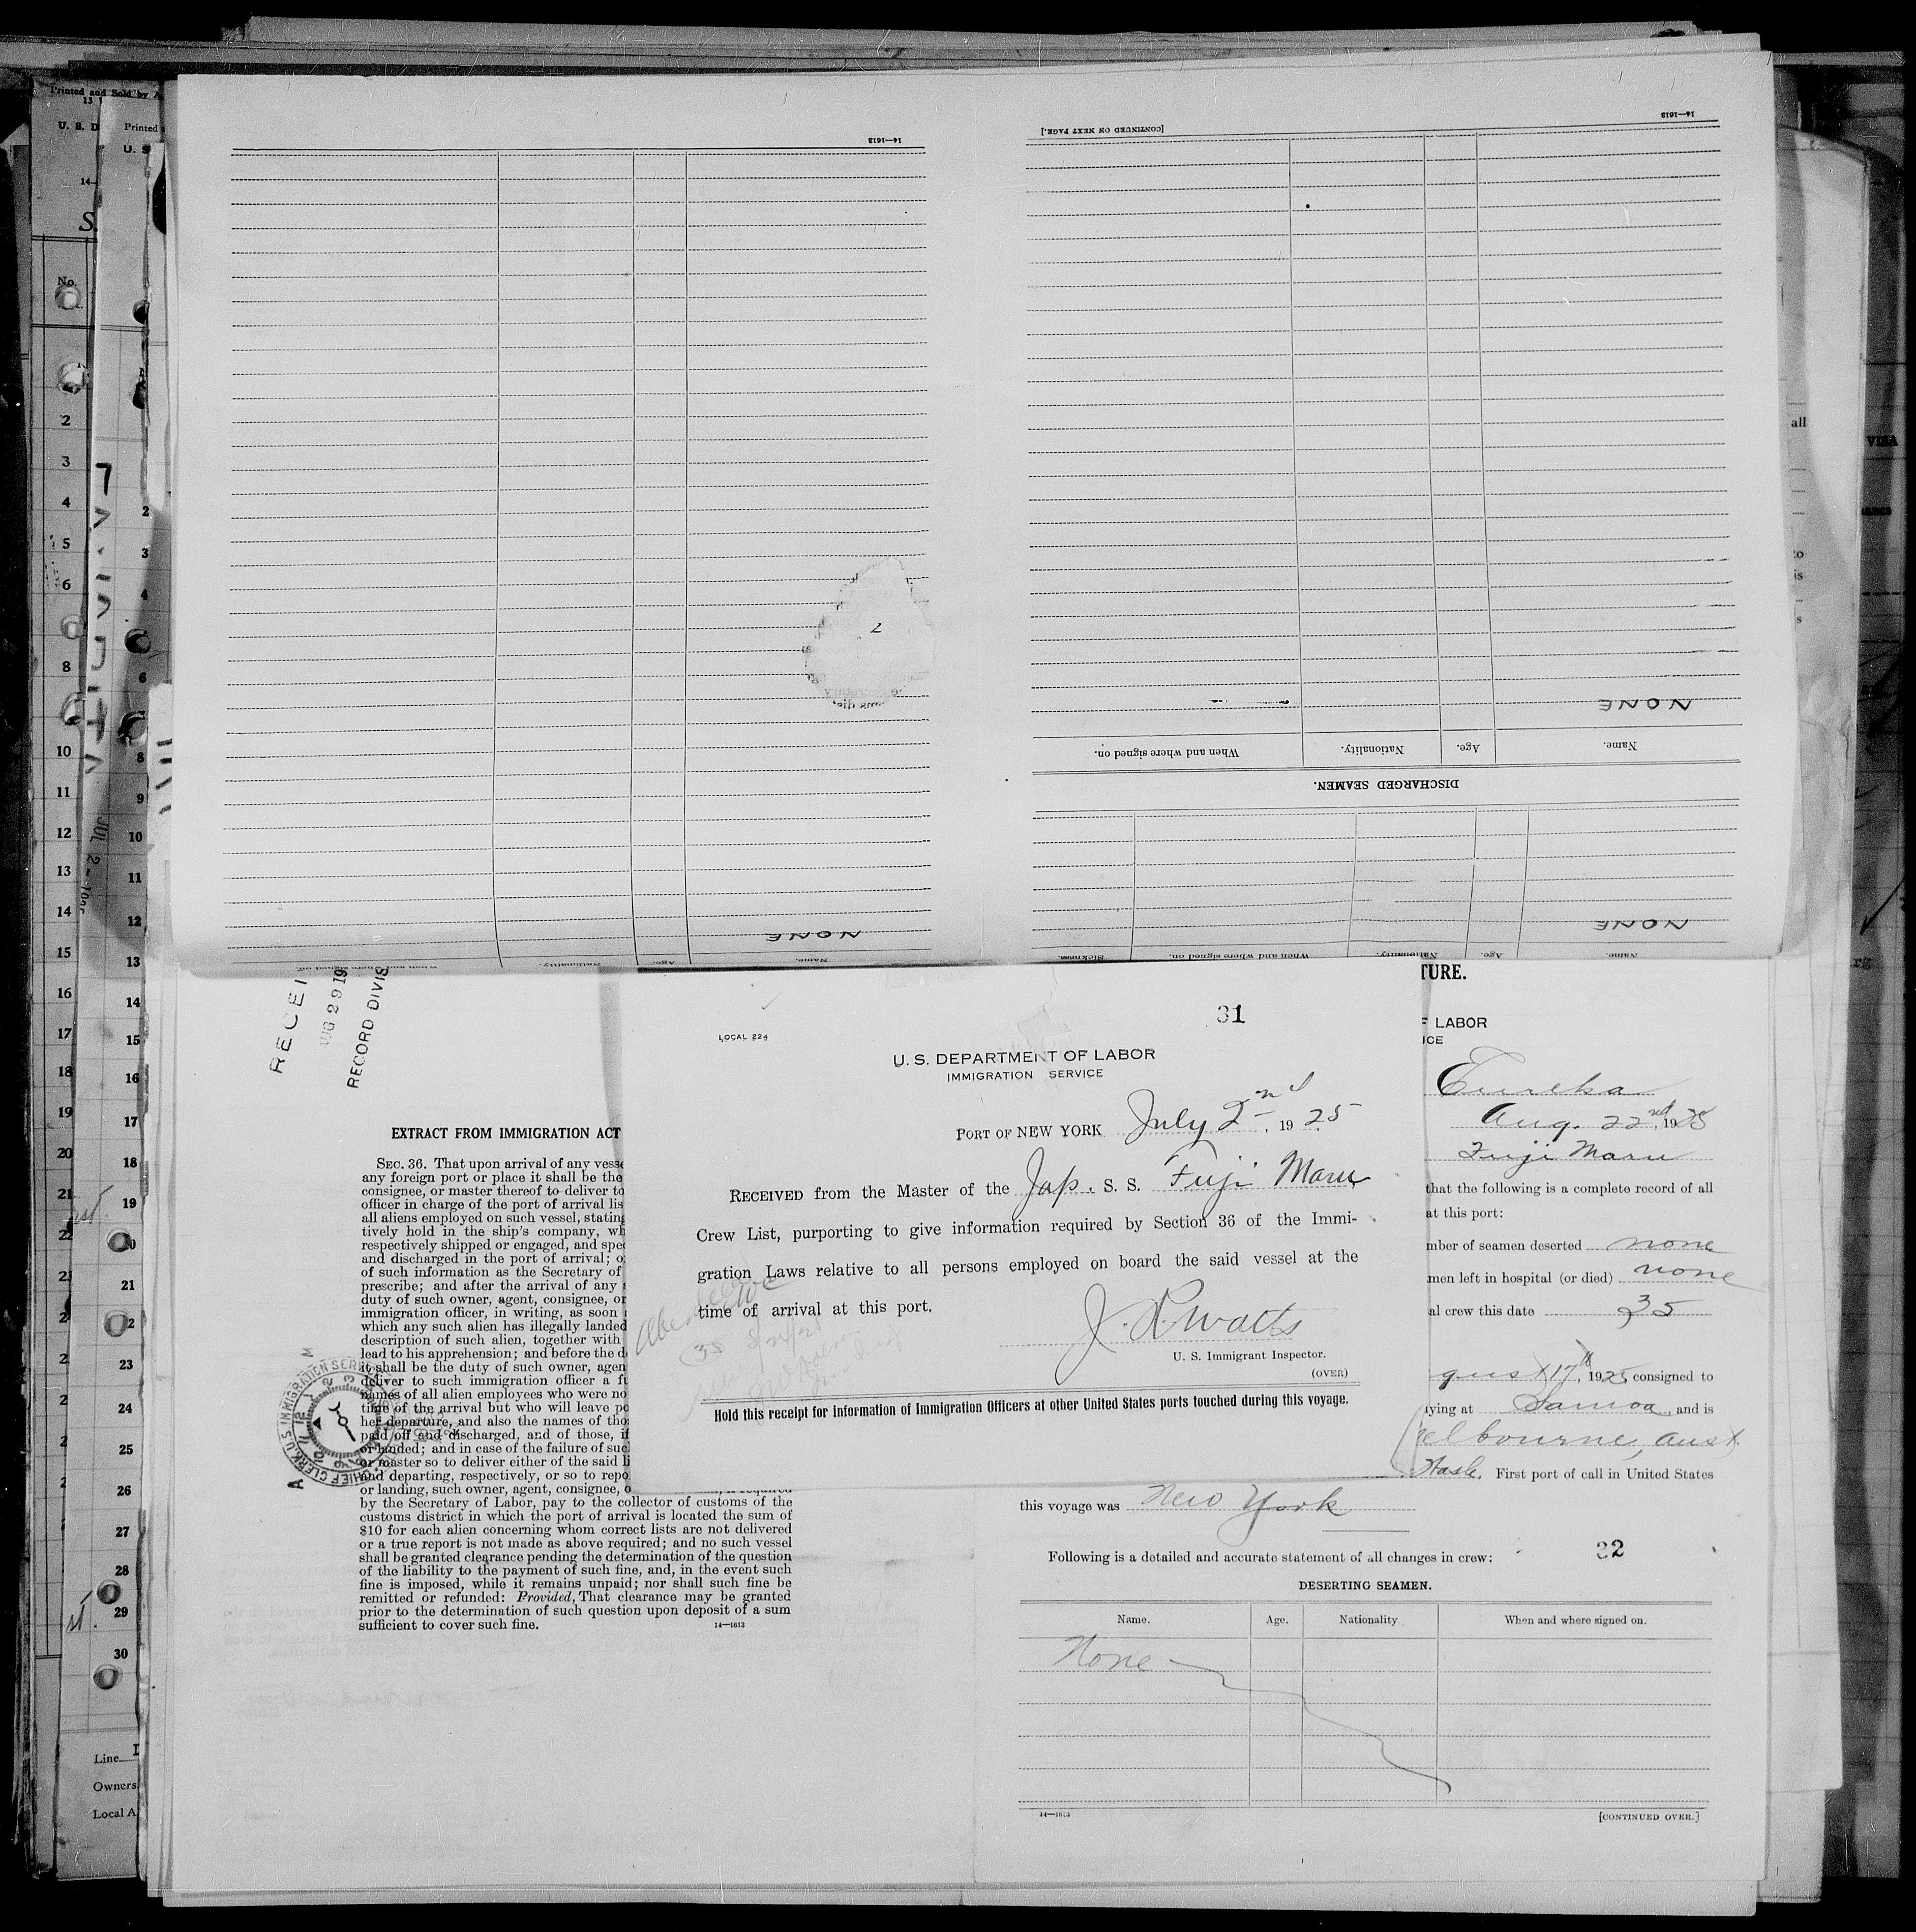 Printed and Sold by
13
U. S. D
Printed
U. S
14—
S.
No.
14—1613
[CONTINUED ON NEXT PAGE.]
14—1613
NONE
Name.
Age.
Nationality.
When and where signed on.
DISCHARGED SEAMEN.
NONE
Name.
Age.
Nationality.
When and where signed on.
Sickness.
NONE
Name.
Age.
Nationality.
When and where signed on.
all
VISA
to
is
s
RECEI
AUG 29 19
RECORD DIVIS
EXTRACT FROM IMMIGRATION ACT
SEC. 36. That upon arrival of any vesse
any foreign port or place it shall be the
consignee, or master thereof to deliver to
officer in charge of the port of arrival lis
all aliens employed on such vessel, stating
tively hold in the ship's company, wh
respectively shipped or engaged, and spe
and discharged in the port of arrival; o
of such information as the Secretary of
prescribe; and after the arrival of any
duty of such owner, agent, consignee, or
immigration officer, in writing, as soon
which any such alien has illegally landed
description of such alien, together with
lead to his apprehension; and before the d
it shall be the duty of such owner, agen
deliver to such immigration officer a fu
names of all alien employees who were no
time of the arrival but who will leave po
her departure, and also the names of tho
paid off and discharged, and of those, if
or landed; and in case of the failure of suc
or master so to deliver either of the said li
and departing, respectively, or so to repo
or landing, such owner, agent, consignee, o
by the Secretary of Labor, pay to the collector of customs of the
customs district in which the port of arrival is located the sum of
$10 for each alien concerning whom correct lists are not delivered
or a true report is not made as above required; and no such vessel
shall be granted clearance pending the determination of the question
of the liability to the payment of such fine, and, in the event such
fine is imposed, while it remains unpaid; nor shall such fine be
remitted or refunded: Provided, That clearance may be granted
prior to the determination of such question upon deposit of a sum
sufficient to cover such fine.
14—1613
31
LOCAL 224
U. S. DEPARTMENT OF LABOR
IMMIGRATION SERVICE
PORT OF NEW YORK July 2nd, 1925
RECEIVED from the Master of the Jap. S. S. Fuji Maru
Crew List, purporting to give information required by Section 36 of the Immi-
gration Laws relative to all persons employed on board the said vessel at the
time of arrival at this port.
J. R. Watts
U. S. Immigrant Inspector.
(OVER)
Hold this receipt for information of Immigration Officers at other United States ports touched during this voyage.
TURE.
F LABOR
ICE
Eureka
Aug. 22nd, 1925
Fuji Maru
that the following is a complete record of all
at this port:
mber of seamen deserted none
men left in hospital (or died) none
al crew this date 35
gust 17th, 1925 consigned to
lying at Samoa, and is
elbourne, Aust.
Wash. First port of call in United States
this voyage was New York
Following is a detailed and accurate statement of all changes in crew:
32
DESERTING SEAMEN.
Name. Age. Nationality. When and where signed on.
None
14—1613
[CONTINUED OVER.]
Line
Owners
Local A